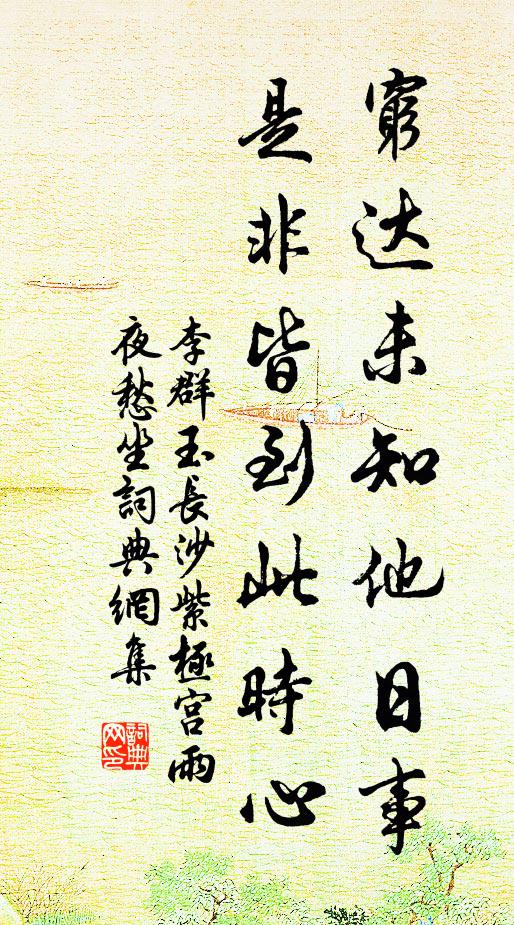 窮达未知他日事
是非皆到此時心
李群玉長沙紫極宮雨
夜愁坐詞典網集
詞典
网印